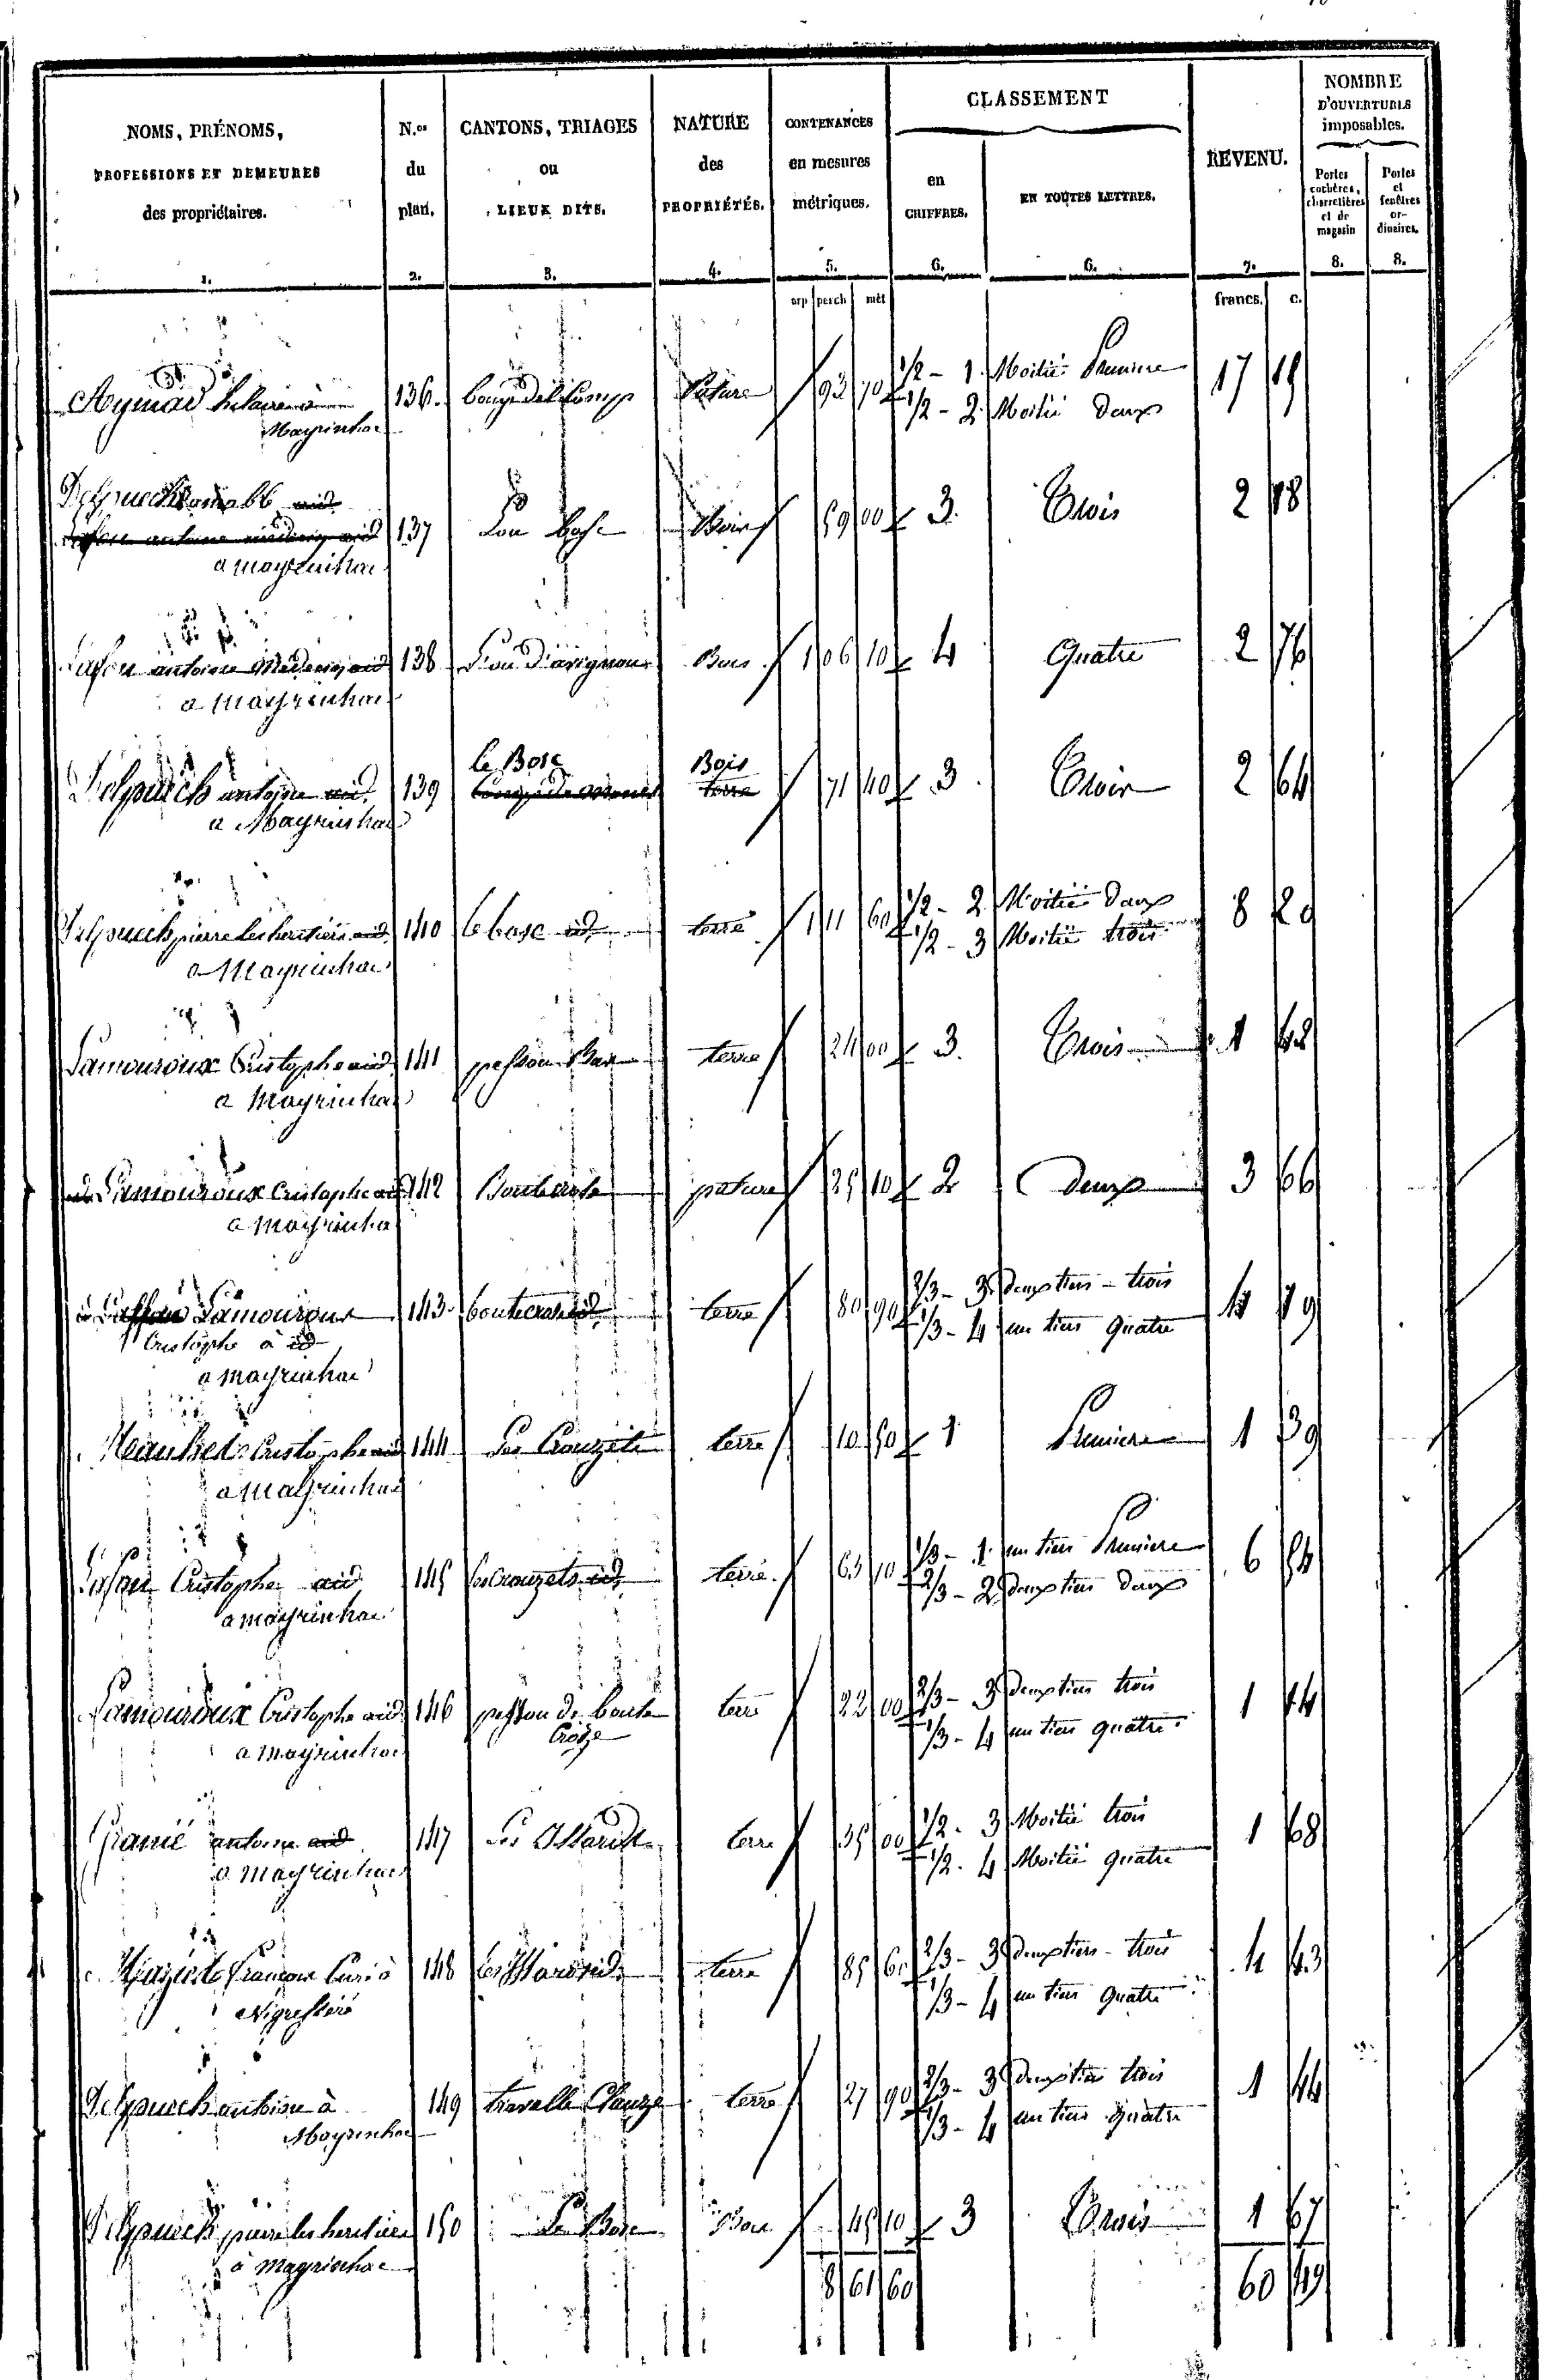 NOMS, PRÉNOMS,
PROFESSIONS ET DEMEURES
des propriétaires.
1.
N.os
du
plan.
2.
CANTONS, TRIAGES
ou
LIEUX DITS.
3.
NATURE
des
PROPRIÉTÉS.
4.
CONTENANCES
en mesures
métriques.
5.
arp perch mèt
CLASSEMENT
en
CHIFFRES.
6.
EN TOUTES LETTRES.
6.
REVENU.
7.
francs. c.
NOMBRE
D'OUVERTURES
imposables.
Portes
cochères,
charretières
et de
magasin
8.
Portes
et
fenêtres
or-
dinaires.
8.
Aymar hilaire à 136. Pature 93 70 1/2 - 1. Moitié Premiere 17
Mayrinhac 1/2 - 2. Moitié Deux
Delpuech 137 Lou bosc Bois 59 00 3. Trois 2 78
a mayrinhac
Lafon antoine Medecin aid 138 Bois 1 06 10 4 Quatre 2 76
a mayrinhac
le Bosc Bois
Delpuech antoine aid 139 terre 71 40 3 Trois 2 64
a Mayrinhac
Delpuech pierre les heritiers aid 140 le bosc id terre 1 11 60 1/2 - 2 Moitié Deux 8 20
a Mayrinhac 1/2 - 3 Moitié trois
Lamouroux Cristophe aid 141 terre 24 00 3. Trois 1
a Mayrinhac
Lamouroux Cristophe aid 142 pature 25 10 2 Deux 3 66
a mayrinhac
Lamouroux 143 terre 80 90 2/3 - 3 Deux tiers - trois 4 19
Cristophe à id 1/3 - 4 un tiers Quatre
a mayrinhac
Cristophe aid 144 Les Crouzets terre 10 50 1 Premiere 1 39
a mayrinhac
Lafon Cristophe aid 145 les Crouzets id terre 63 10 1/3 - 1. un tiers Premiere 6 54
a mayrinhac 2/3 - 2 deux tiers Deux
Lamouroux Cristophe aid 146 terre 22 00 2/3 - 3 Deux tiers trois 1 14
a mayrinhac 1/3 - 4 un tiers quatre
Granié antoine aid 147 Les terre 35 00 1/2 - 3 Moitié trois 1 68
a mayrinhac 1/2 - 4 Moitié quatre
françois Curé à 148 les terre 85 60 2/3 - 3 Deux tiers - trois 4 43
1/3 - 4 un tiers Quatre
Delpuech antoine à 149 terre 27 90 2/3 - 3 Deux tiers trois 1 44
Mayrinhac 1/3 - 4 un tiers Quatre
Delpuech pierre les heritiers 150 Le Bosc Bois 45 10 3 Trois 1 67
à Mayrinhac
8 61 60 60 49